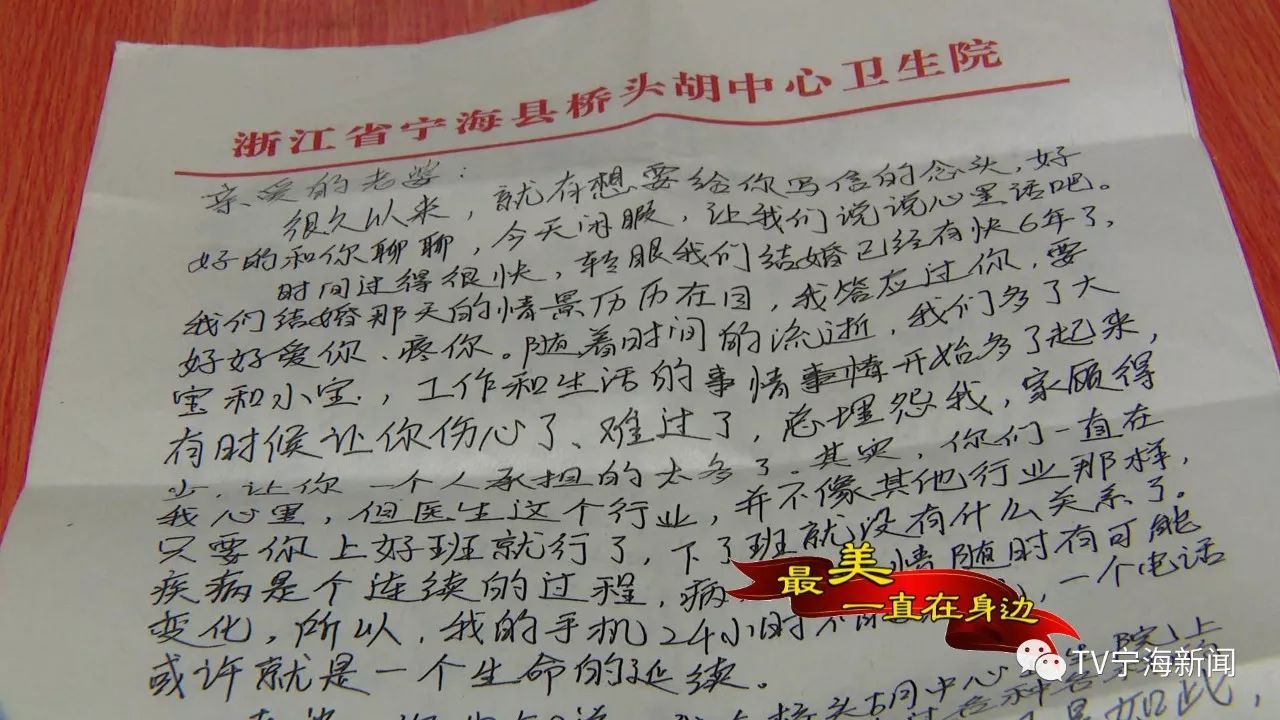 浙江省宁海县桥头胡中心卫生院
亲爱的老婆：
很久以来，就有想要给你写信的念头，好
好的和你聊聊，今天闲暇，让我们说说心里话吧。
时间过得很快，转眼我们结婚已经有快6年了，
我们结婚那天的情景历历在目，我答应过你，要
好好爱你、疼你。随着时间的流逝，我们多了大
宝和小宝，工作和生活的事情事情开始多了起来，
有时候让你伤心了、难过了，总埋怨我，家顾得
少，让你一个人承担的太多了。其实，你们一直在
我心里，但医生这个行业，并不像其他行业那样，
只要你上好班就行了，下了班就没有什么关系了。
疾病是个连续的过程，病 情随时有可能
变化，所以，我的手机24小时不 ，一个电话
或许就是一个生命的延续。
桥头胡中心 院上
如此，
最美
一直在身边
TV宁海新闻